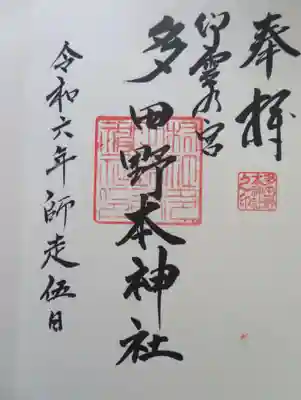 奉拝
多田野本神社
令和六年師走伍日